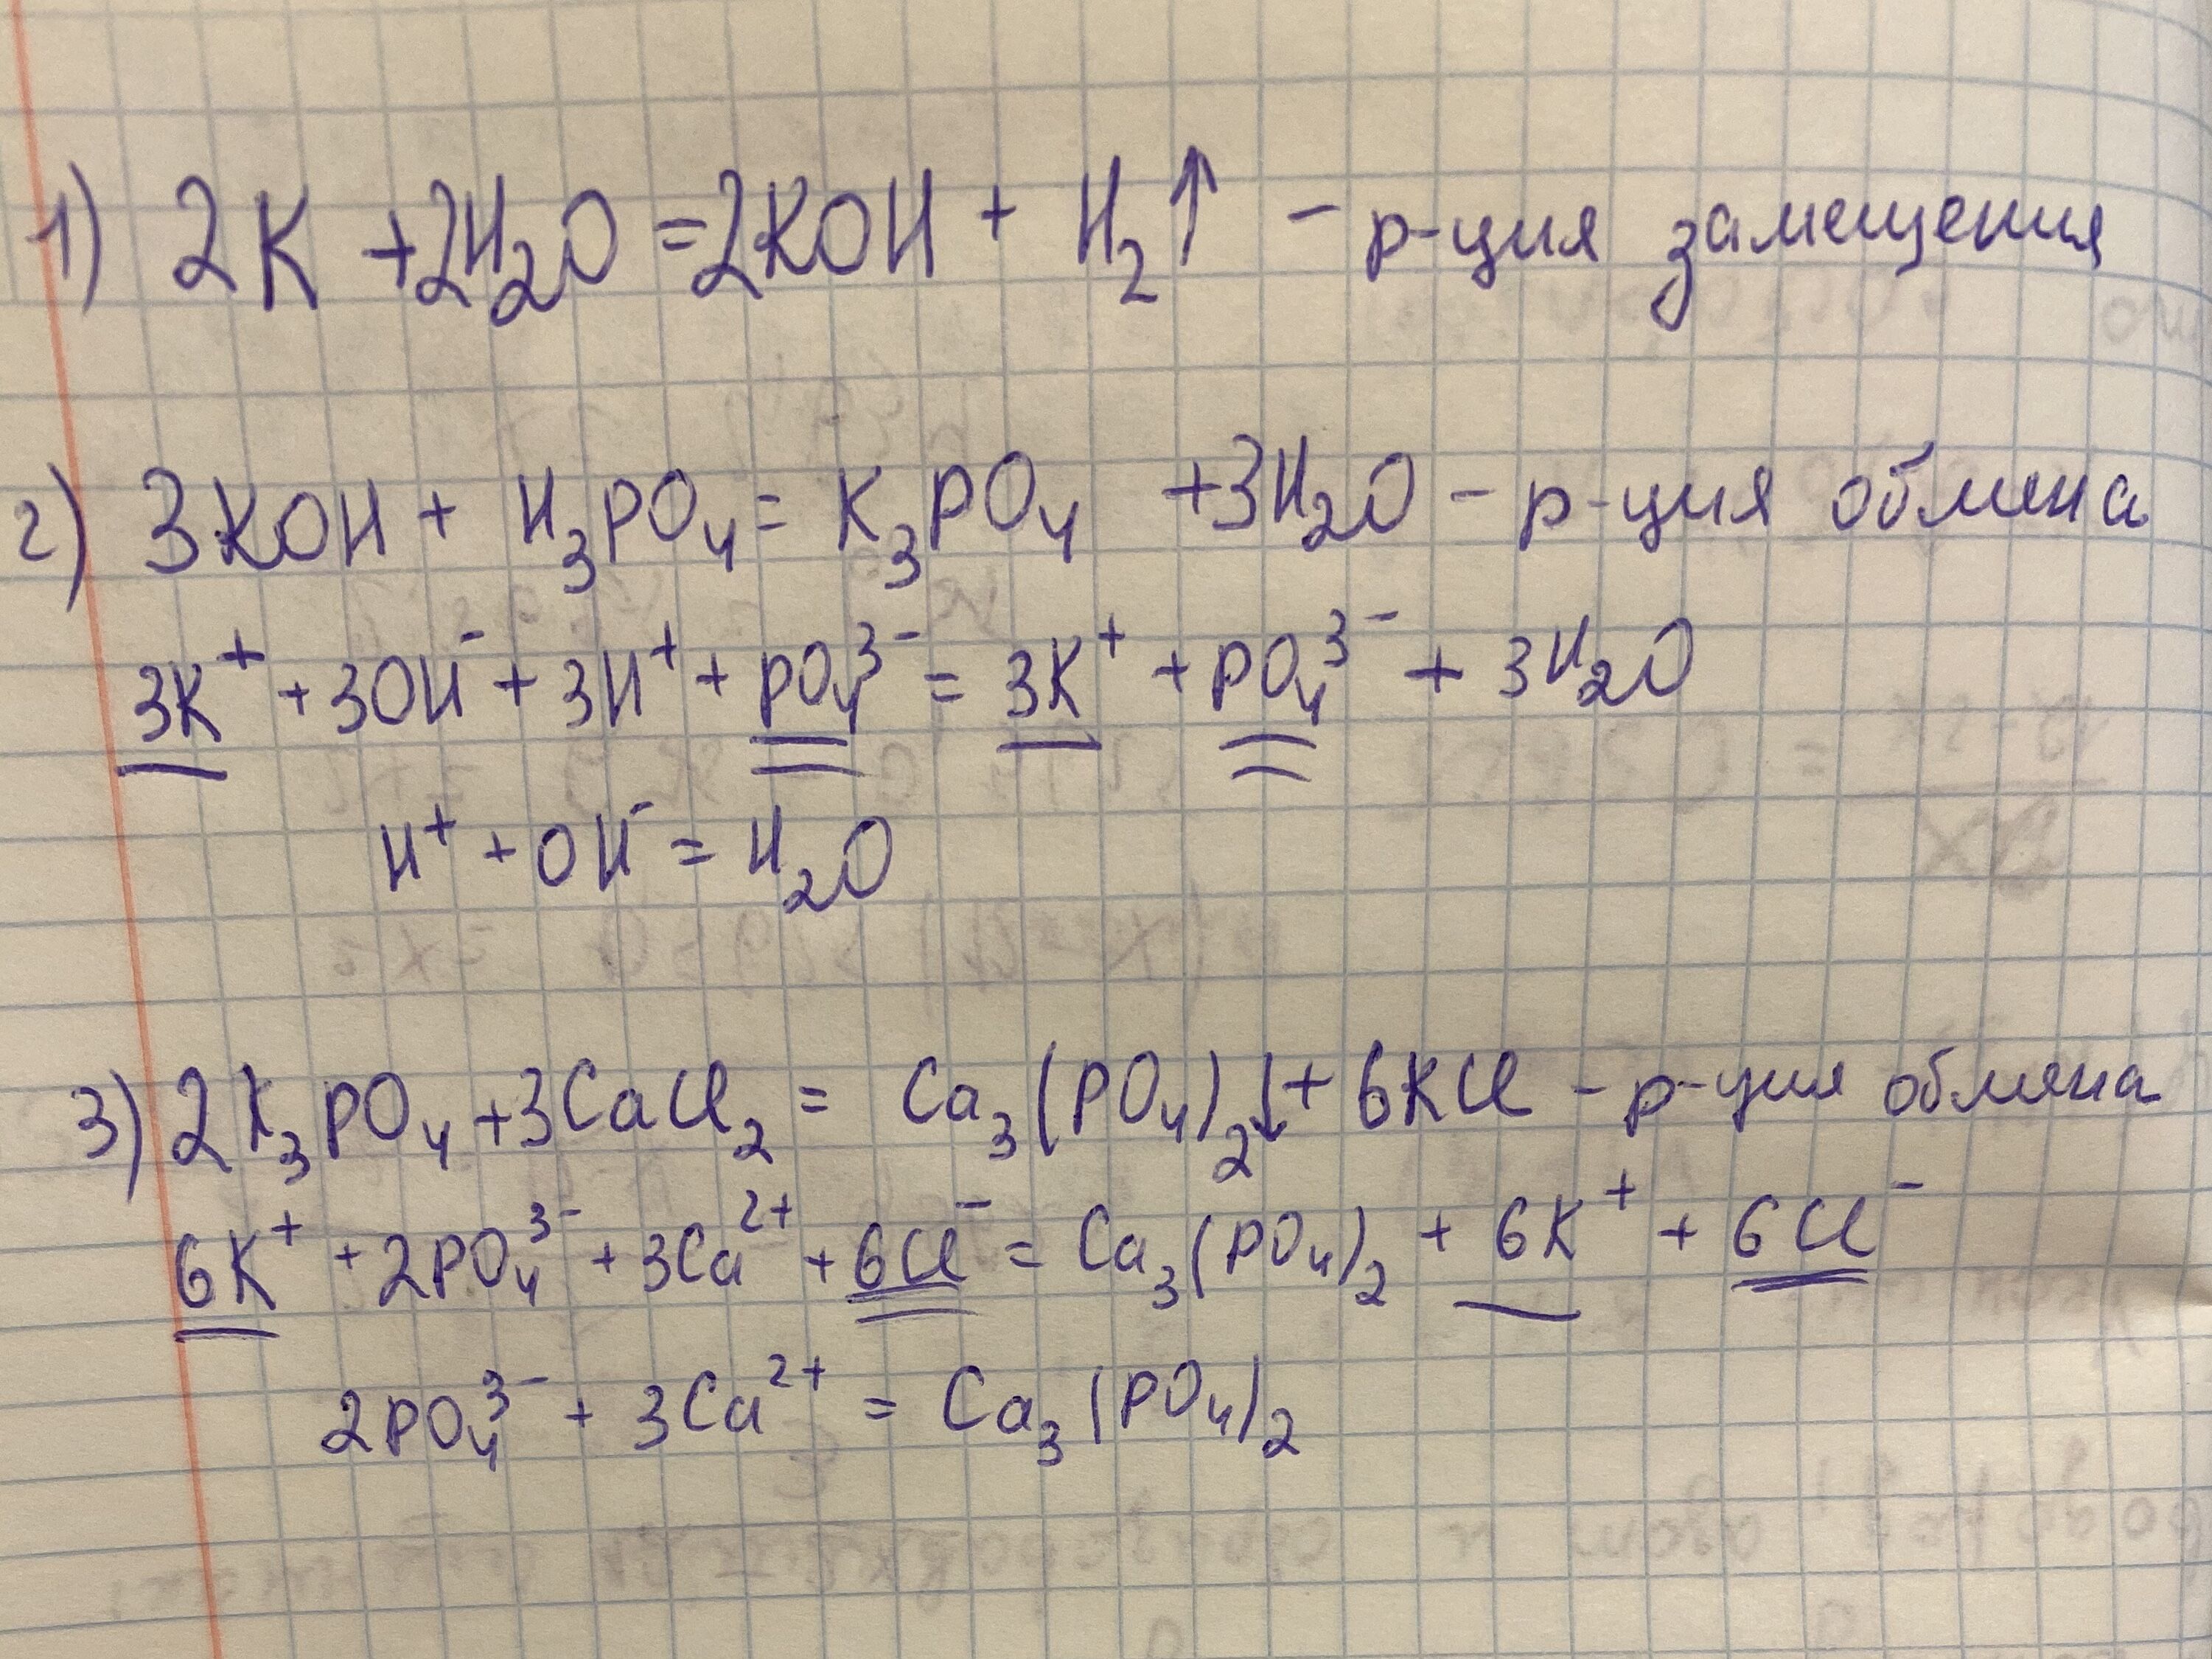 1) 2K + 2H₂O = 2KOH + H₂↑ - р-ция замещения
2) 3KOH + H₃PO₄ = K₃PO₄ + 3H₂O - р-ция обмена
3K⁺ + 3OH⁻ + 3H⁺ + PO₄³⁻ = 3K⁺ + PO₄³⁻ + 3H₂O
H⁺ + OH⁻ = H₂O
3) 2K₃PO₄ + 3CaCl₂ = Ca₃(PO₄)₂↓ + 6KCl - р-ция обмена
6K⁺ + 2PO₄³⁻ + 3Ca²⁺ + 6Cl⁻ = Ca₃(PO₄)₂ + 6K⁺ + 6Cl⁻
2PO₄³⁻ + 3Ca²⁺ = Ca₃(PO₄)₂